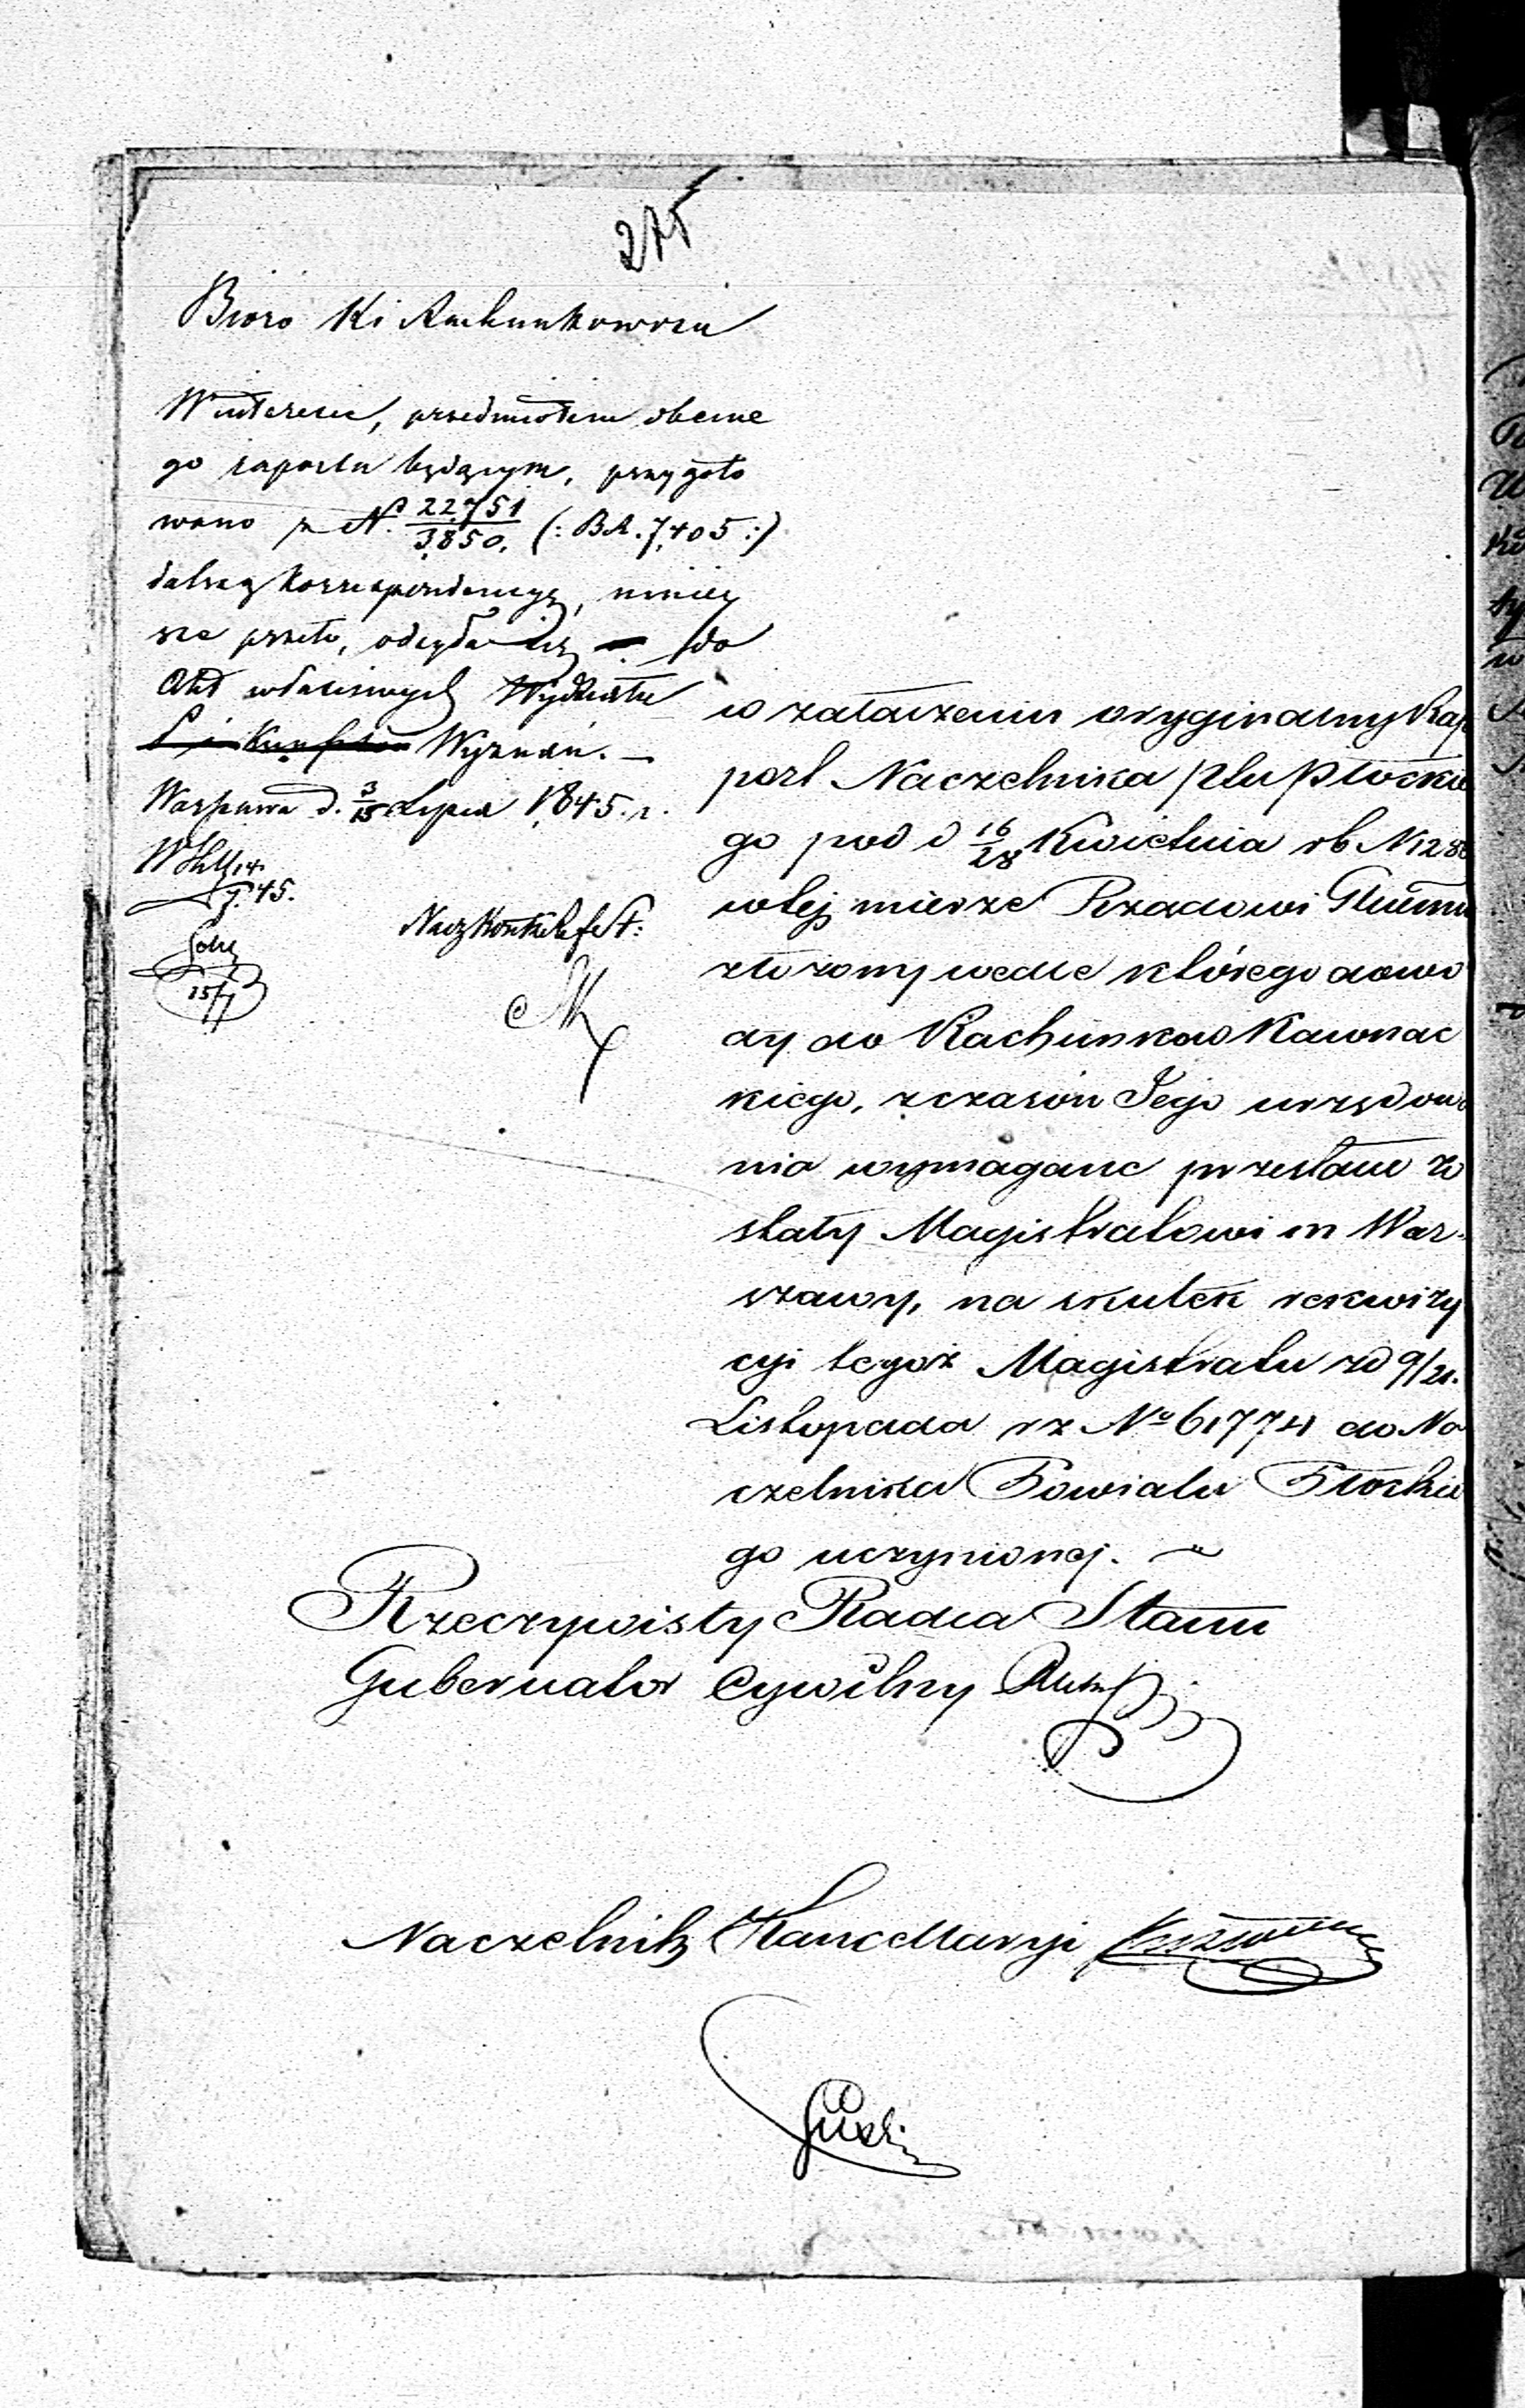 275
Biuro Ki Rachunkowości
W interesie, przedmiotem obecne
go raportu będącym, przygoto
wano z N. 22751/3850. (: BR. 7,405 :)
dalszą Korrespondencyę, niniey
sze przeto, odsyła się do
Akt właściwych Wydziału
Wyznań. —
Warszawa d. 3/15 Lipca 1845. r.
14.
7. 45.
15/7
w załączeniu oryginalny Rap
port Naczelnika Ptu Płockie
go pod d 16/28 Kwietnia rb N 128
w tej mierze Rządowi Gubernu
złożony wedle którego dowo
dy do Rachunków Kawnac
kiego, z czasów Jego urzędowa
nia wymagane przesłane zo
stały Magistratowi m War-
szawy, na skutek rekwizy
cyi tegoż Magistratu z d 9/21.
Listopada r z No 61774 do Na
czelnika Powiatu Płockie
go uczynionej. ~
Rzeczywisty Radca Stanu
Gubernator Cywilny
Naczelnik Kancellaryi